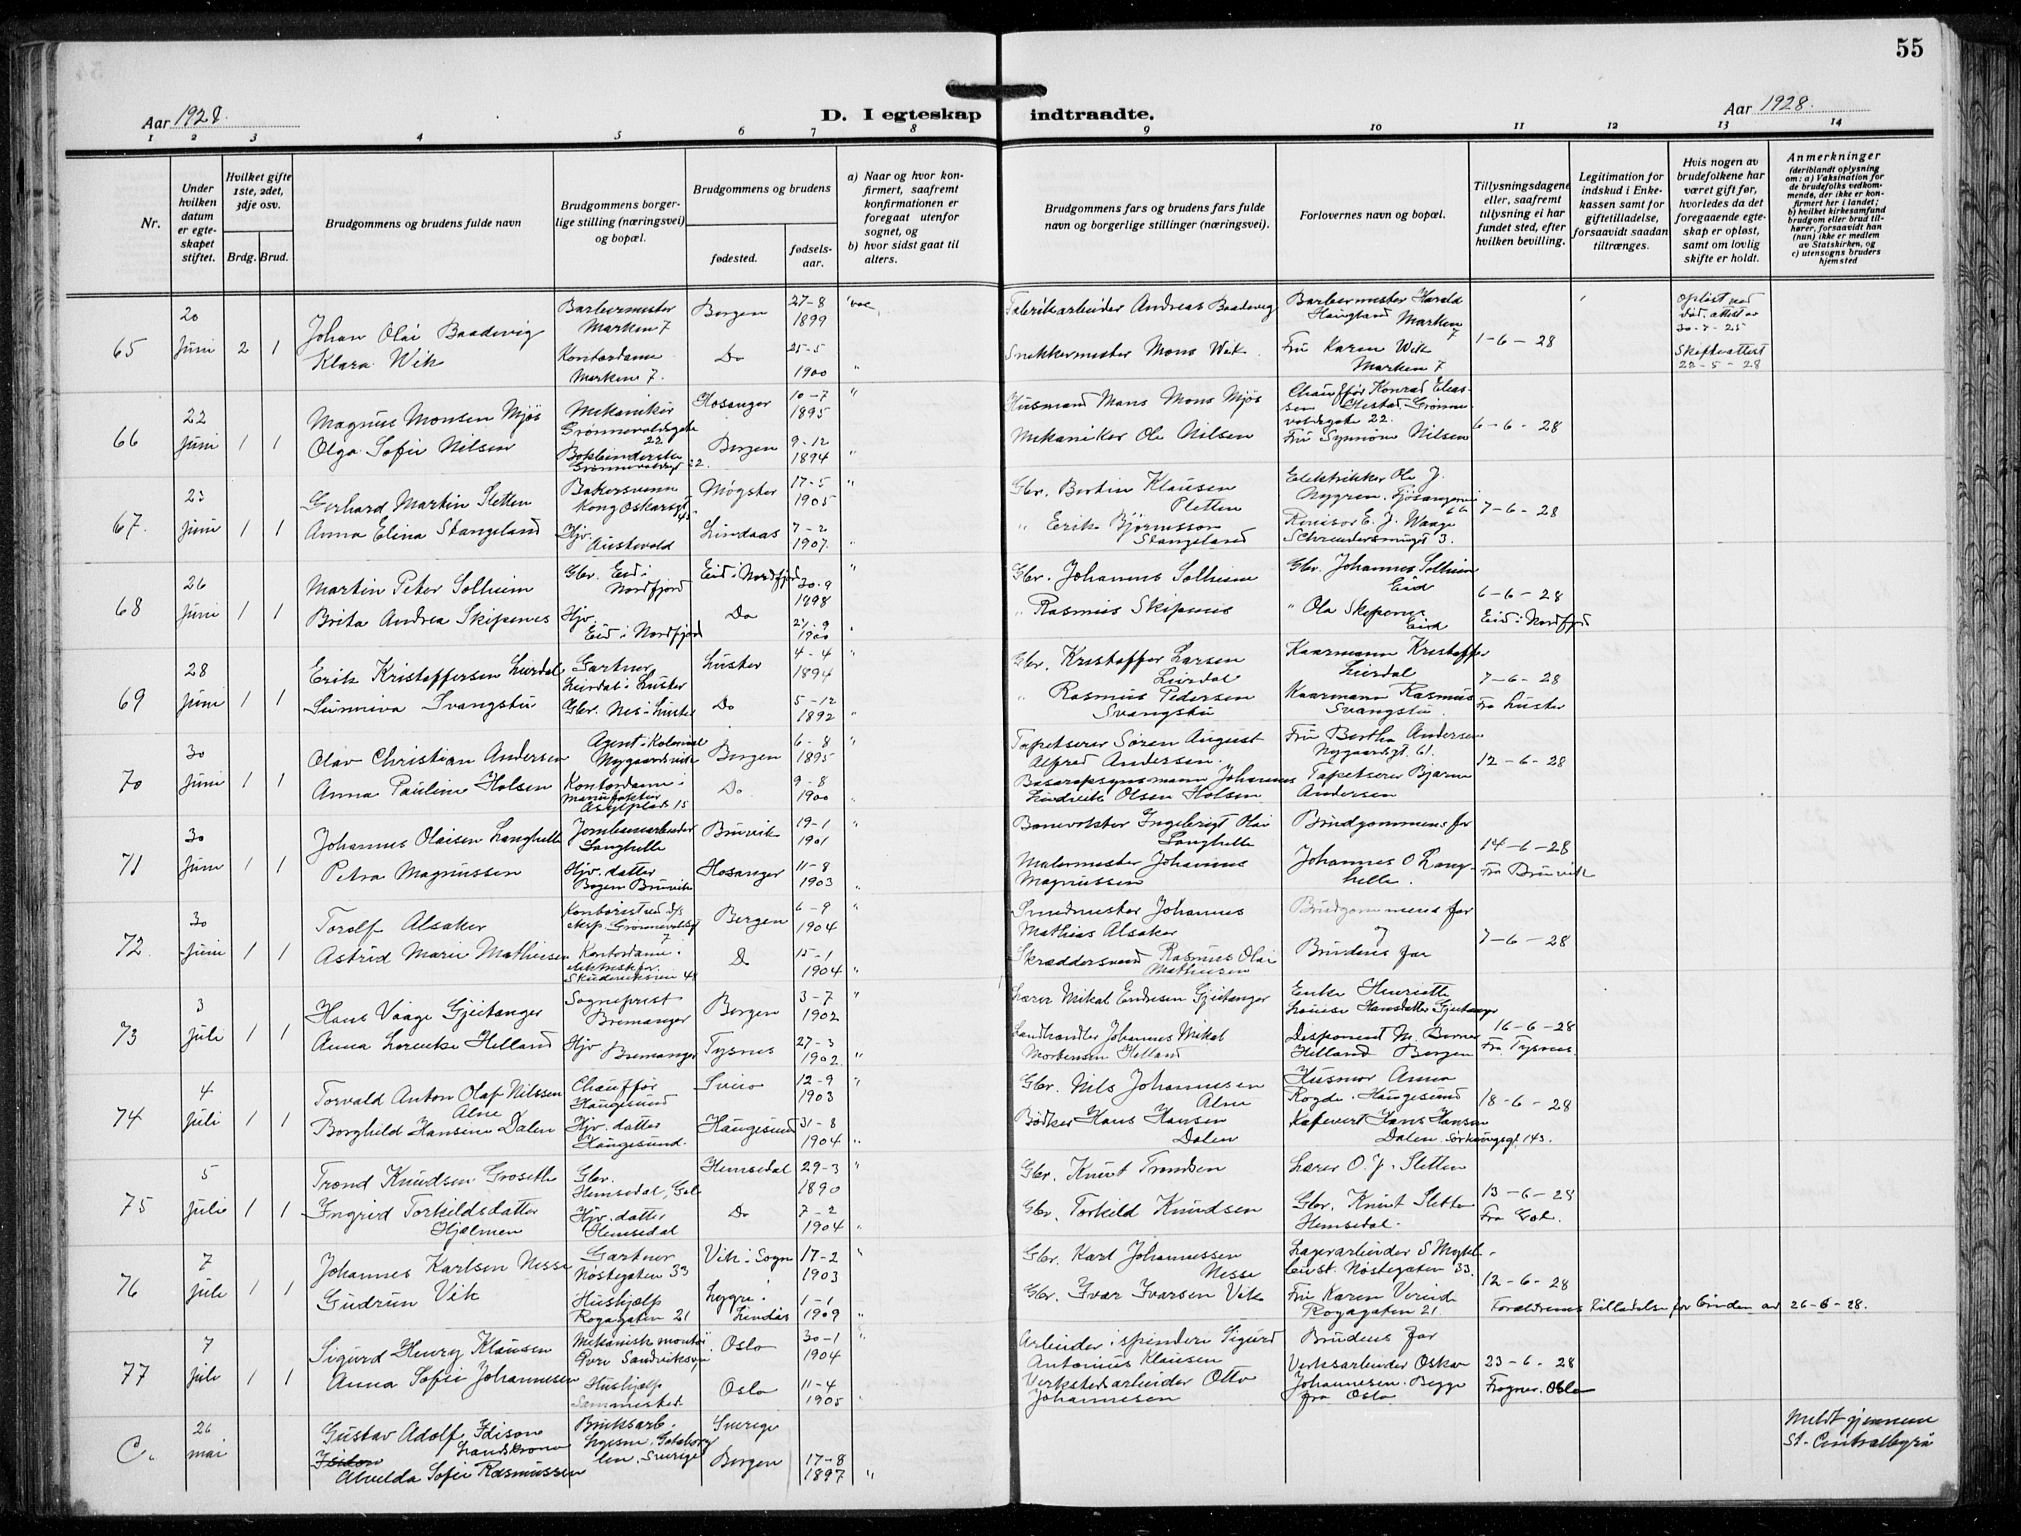 55
Aar 1928.
D. Iegteskap indtraadte.
Aar 1928.
1 2 3 4 5 6 7 8 9 10 11 12 13 14
Nr.
Under hvilken datum er egteskapet stiftet.
Hvilket gifte 1ste, 2det, 3dje osv.
Brdg. Brud.
Brudgommens og brudens fulde navn
Brudgommens borgerlige stilling (næringsvei) og bopæl.
Brudgommens og brudens
fødested.
fødselsaar.
a) Naar og hvor konfirmert, saafremt konfirmationen er foregaat utenfor sognet, og
b) hvor sidst gaat til alters.
Brudgommens fars og brudens fars fulde navn og borgerlige stillinger (næringsvei).
Forlovernes navn og bopæl.
Tillysningsdagene eller, saafremt tillysning ei har fundet sted, efter hvilken bevilling.
Legitimation for indskud i Enkekassen samt for giftetilladelse, forsaavidt saadan tiltrænges.
Hvis nogen av brudefolkene har været gift før, hvorledes da det foregaaende egteskap er opløst, samt om lovlig skifte er holdt.
Anmerkninger
(deriblandt oplysning om: a) Vaksination for de brudefolks vedkommende, der ikke er konfirmert her i landet; b) hvilket kirkesamfund brudgom eller brud tilhører, forsaavidt han (hun) ikke er medlem av Statskirken, og c) utensogns bruders hjemsted
65 20 Juni 2 1
Johan Olai Baadevig Barbermester Marken 7 Bergen 27-8 1899 Fabrikarbeider Andreas Baadevig Barbermester Harald Haugland Marken 7 1-6-28
Klara Wik Kontordame Marken 7. Do 25-5 1900 " Snekkermester Mons Wik Fru Karen Wik Marken 7 Skifteattest 22-5-28
66 22 Juni 1 1
Magnus Monsen Mjøs Mekaniker Grønnevoldsgate 22 Hosanger 10-7 1895 " Husmand Mons Mjøs Chauffør Konrad 22. 6-6-28
Olga Sofie Nilsen Bokbinderske 22. Bergen 9-12 1894 " Mekaniker Ole Nilsen Fru Synnøve Nilsen
67. 23 Juni 1 1
Gerhard Martin Sletten Bakersvenn Kong Oskarsgt 45 Møgster 17-5 1905 " Gbr. Bertin Klausen Sletten Elektriker Ole J. Nygren. 66 7-6-28
Anna Elina Stangeland Hjv. Austevold Lindaas 7-2 1907. " " Erik Bjørnsson Stangeland Revisor E. J. Waage 3.
68 26 Juni 1 1
Martin Peter Solheim Gbr. Eid i Nordfjord Eid i Nordfjord 30-9 1898 " Gbr. Johannes Solheim Gbr. Johannes Solheim Eid 6-6-28
Brita Andrea Skipenes Hjv. Eid i Nordfjord Do 1900 " " Rasmus Skipenes " Ola Skipenes Eid Eid i Nordfjord
69 28 Juni 1 1
Erik Kristoffersen Leirdal Gartner Leirdal i Luster Luster 4-4 1894 " Gbr. Kristoffer Larsen Leirdal Kaarmann Kristoffer Leirdal 7-6-28
Sunniva Svangstu Gbr. Nes i Luster Do 5-12 1892 " " Rasmus Pedersen Svangstu Kaarmann Rasmus Svangstu Fra Luster
70 30 Juni 1 1
Olav Christian Andersen Agent i Kolonial Bergen 6-8 1895 " Tapetserer Søren August Alfred Andersen. Fru Bertha Andersen Nygaardsgt. 61. 12-6-28
Anna Pauline Holsen Kontordame i Manufaktur Asylplads 15 Do 9-8 1900 " Johannes Olsen Holsen Tapetserer Bjarne Andersen
71 30 Juni 1 1
Johannes Olaisen Langhelle Jernbanearbeider Langhelle Bruvik 19-1 1901 " Banevokter Ingebrigt Olai Langhelle Brudgommens far 14-6-28
Petra Magnussen Hjv. datter Bruvik Hosanger 11-8 1903 " Malermester Johannes Magnussen Johannes O Langhelle. Fra Bruvik
72. 30 Juni 1 1
Torolf Alsaker Kontorist 7 Bergen 6-9 1904 " Smedmester Johannes Mathias Alsaker Brudgommens far og 7-6-28
Astrid Marie Mathiesen Kontordame i Do 15-1 1904 " Skræddersvend Rasmus Olai Mathiesen Brudens far
73 3 Juli 1 1
Hans Vaage Gjeitanger Sogneprest Bremanger Bergen 3-7 1902 " Lærer Mikal Endresen Gjeitanger Enke Henriette Louise Hansdatter Gjeitanger 16-6-28
Anna Lorentze Helland Hjv Bremanger Tysnes 27-3 1902. " Landhandler Johannes Mikal Mortensen Helland Disponent M. Berner Helland Bergen Fra Tysnes.
74 4 Juli 1 1
Torvald Anton Olaf Nilssen Alne Chauffør Haugesund Sveio 12-9 1903 " Gbr. Nils Johannesen Alne Husmor Anna Rogde. Haugesund 18-6-28
Borghild Hansine Dalen Hjv. datter Haugesund. Haugesund 31-8 1904 " Bødker Hans Hansen Dalen Kafevert Hans Hansen Dalen. 143.
75 5 Juli 1 1
Trond Knudsen Groseth Gbr. Hemsedal, Gol Hemsedal 29-3 1890 " Gbr. Knut Trondsen Lærer O. J. Sletten 13-6-28
Ingrid Torkildsdatter Hjelmen Hjv. datter Hemsedal Do 7-2 1904 " Gbr. Torkild Knudsen Gbr. Knut Slette Hemsedal. Fra Gol.
76 7 Juli 1 1
Johannes Karlsen Nesse Gartner Nøstegaten 33 Vik i Sogn 17-2 1903 " Gbr. Karl Johannessen Nesse Lagerarbeider S Nøstegaten 33. 12-6-28
Gudrun Vik Hushjælp 21 Lygre i Lindås 1-1 1909 " Gbr. Ivar Ivarsen Vik Fru Karen 21. Forældrenes tilladelse for bruden av 26-6-28.
77 7 Juli 1 1
Sigurd Henry Klausen Mekanisk montør Øvre Sandviksvei Oslo 30-1 1904 Arbeider i spinderi Sigurd Antonius Klausen Brudens far 23-6-28
Anna Sofie Johannesen Hushjælp Sammesteds Oslo 11-4 1905 " Verkstedarbeider Otto Johannesen Verksarbeider Oskar Johannesen. Begge fra Oslo Frogner. Oslo
C. 26 mai
Gustav Adolf Edison Landskrona Bruksarb. Göteborg len, Sverige Sverige Meldt gjennem St. Centralbyrå
Alvelda Sofie Rasmussen Bergen 17-8 1897 "